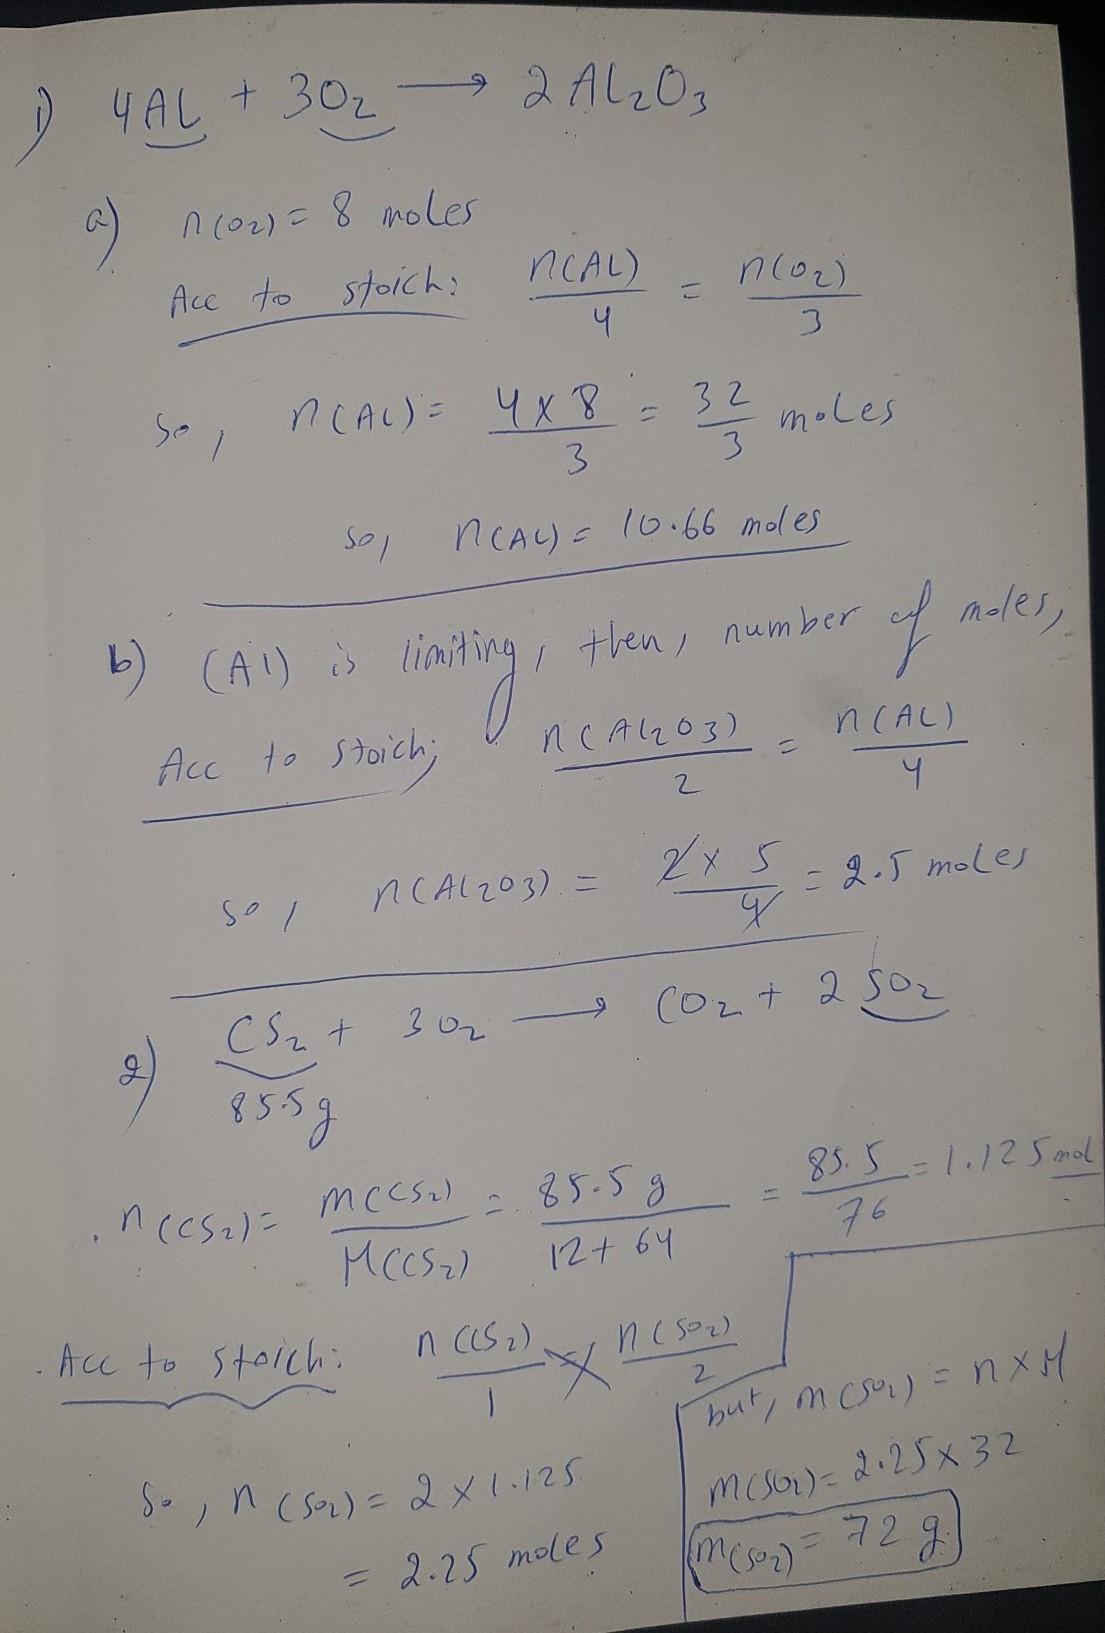 1) 4Al + 3O2 → 2Al2O3
a) n(O2) = 8 moles
Acc to stoich: n(Al)/4 = n(O2)/3
so, n(Al) = 4 x 8/3 = 32/3 moles
so, n(Al) = 10.66 moles
b) (Al) is limiting, then, number of moles,
Acc to stoich; n(Al2O3)/2 = n(Al)/4
so, n(Al2O3) = 2 x 5/4 = 2.5 moles
2) CS2 + 3O2 → CO2 + 2SO2
85.5g
. n(CS2) = m(CS2)/M(CS2) = 85.5 g/12 + 64 = 85.5/76 = 1.125 mol
. Acc to stoich: n(CS2)/1 = n(SO2)/2
so, n(SO2) = 2 x 1.125
= 2.25 moles
but, m(SO2) = n x M
m(SO2) = 2.25 x 32
m(SO2) = 72 g